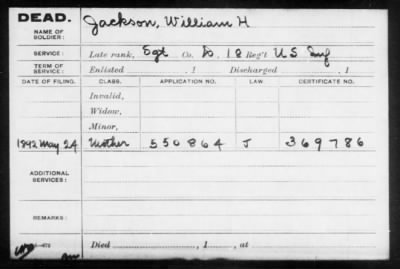 DEAD.
NAME OF SOLDIER:
Jackson, William H
SERVICE:
Late rank, Sgt Co. D, 18 Reg't U S Inf
TERM OF SERVICE:
Enlisted , 1 Discharged , 1
DATE OF FILING. CLASS. APPLICATION NO. LAW CERTIFICATE NO.
Invalid,
Widow,
Minor,
1892 May 24 Mother 550864 J 369786
ADDITIONAL SERVICES:
REMARKS:
Died , 1 , at